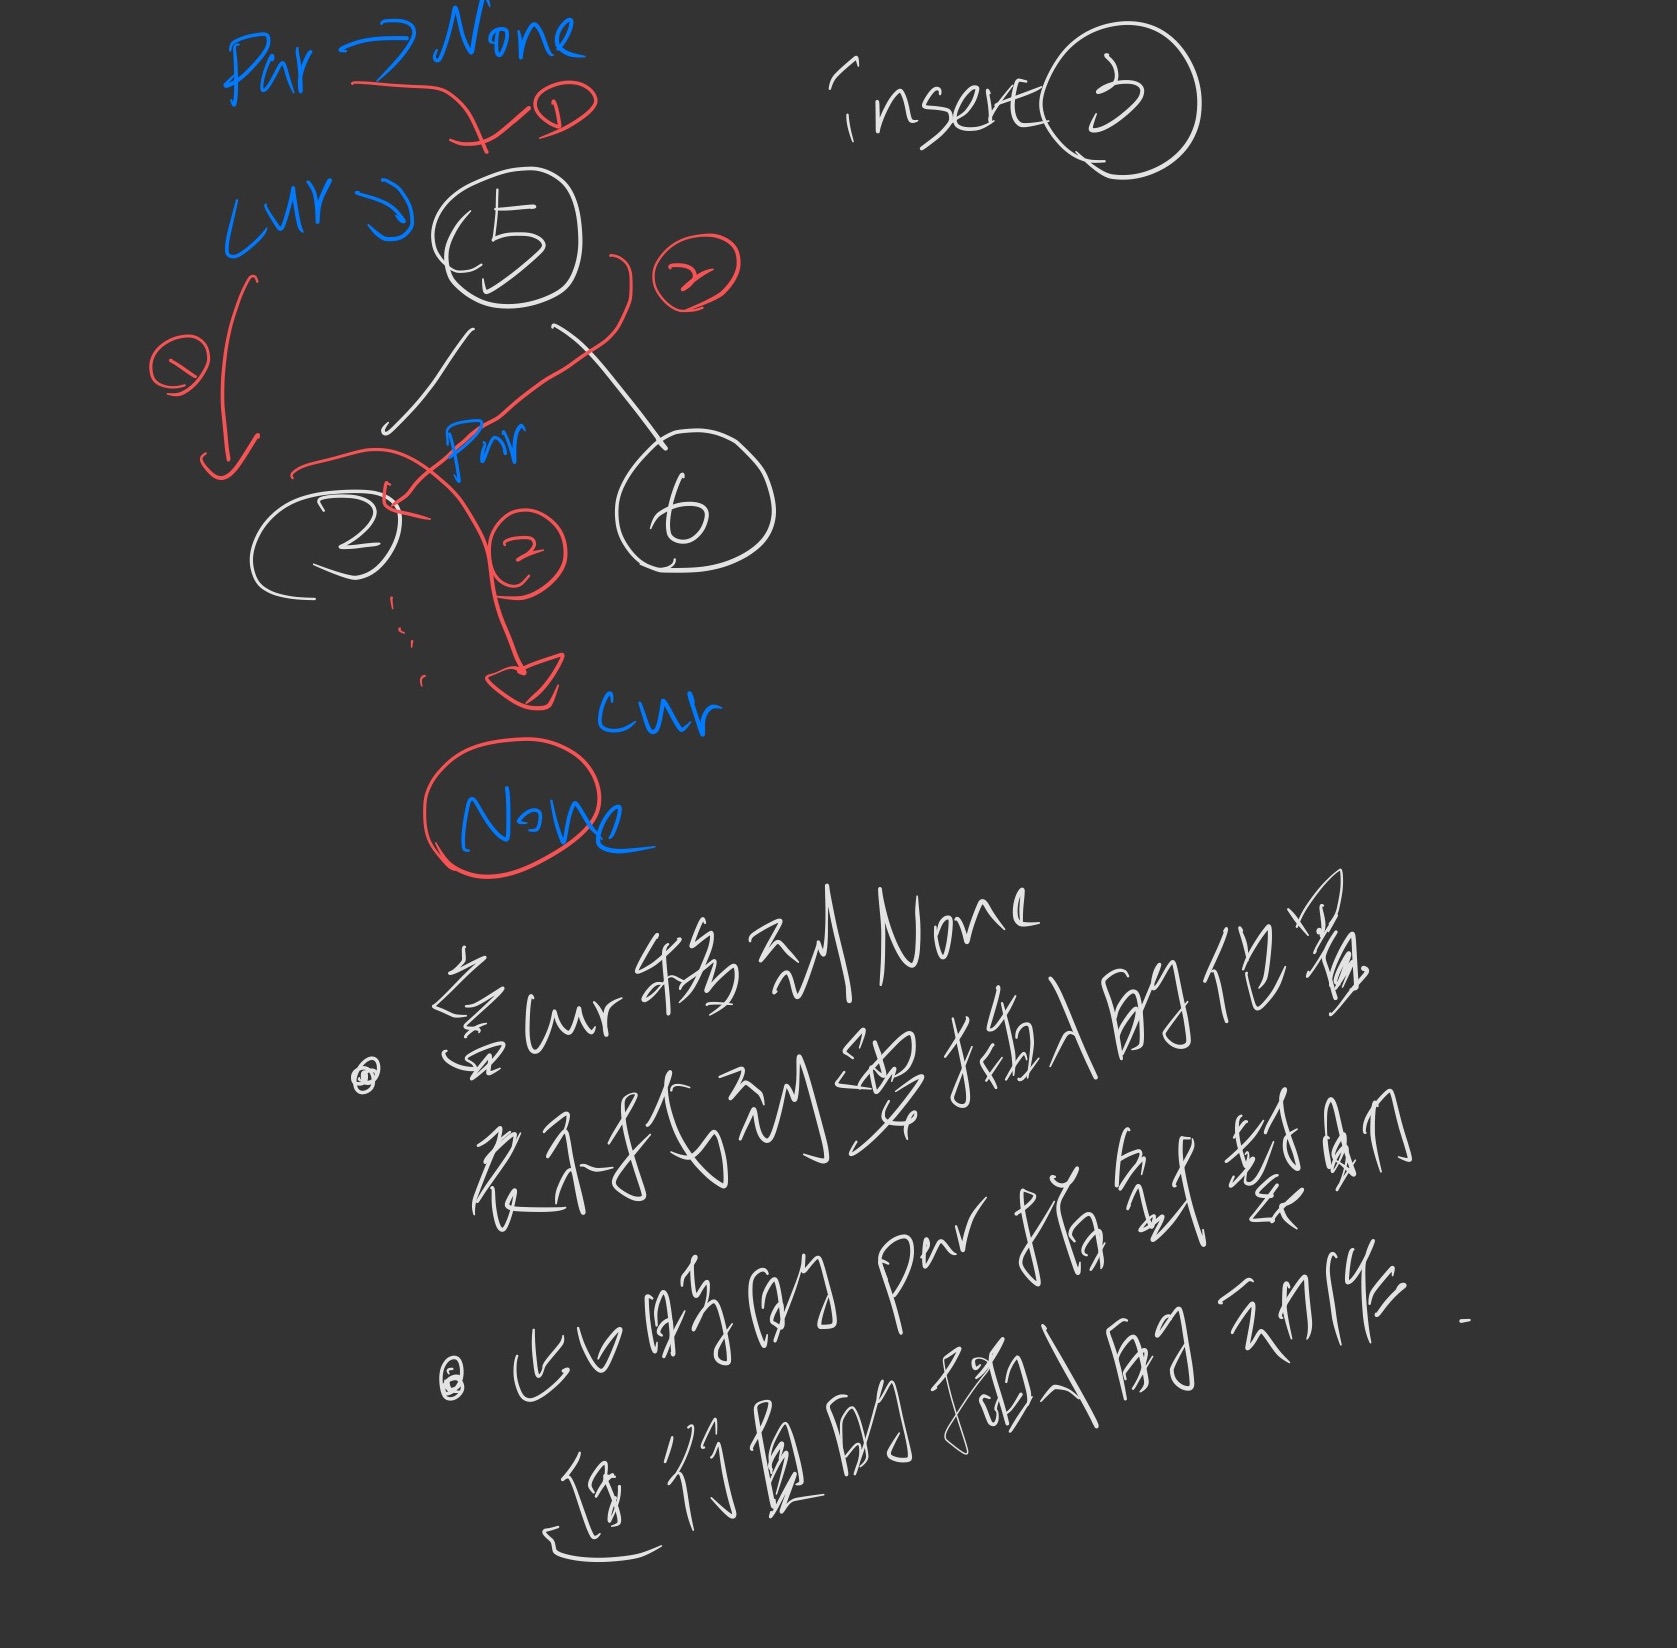 Par → None
①
insert ③
cur →
5
②
①
Par
2
6
②
cur
None
• 當cur移到None
表示找到要插入的位置
• 此時的par指針幫助
進行真的插入的动作.